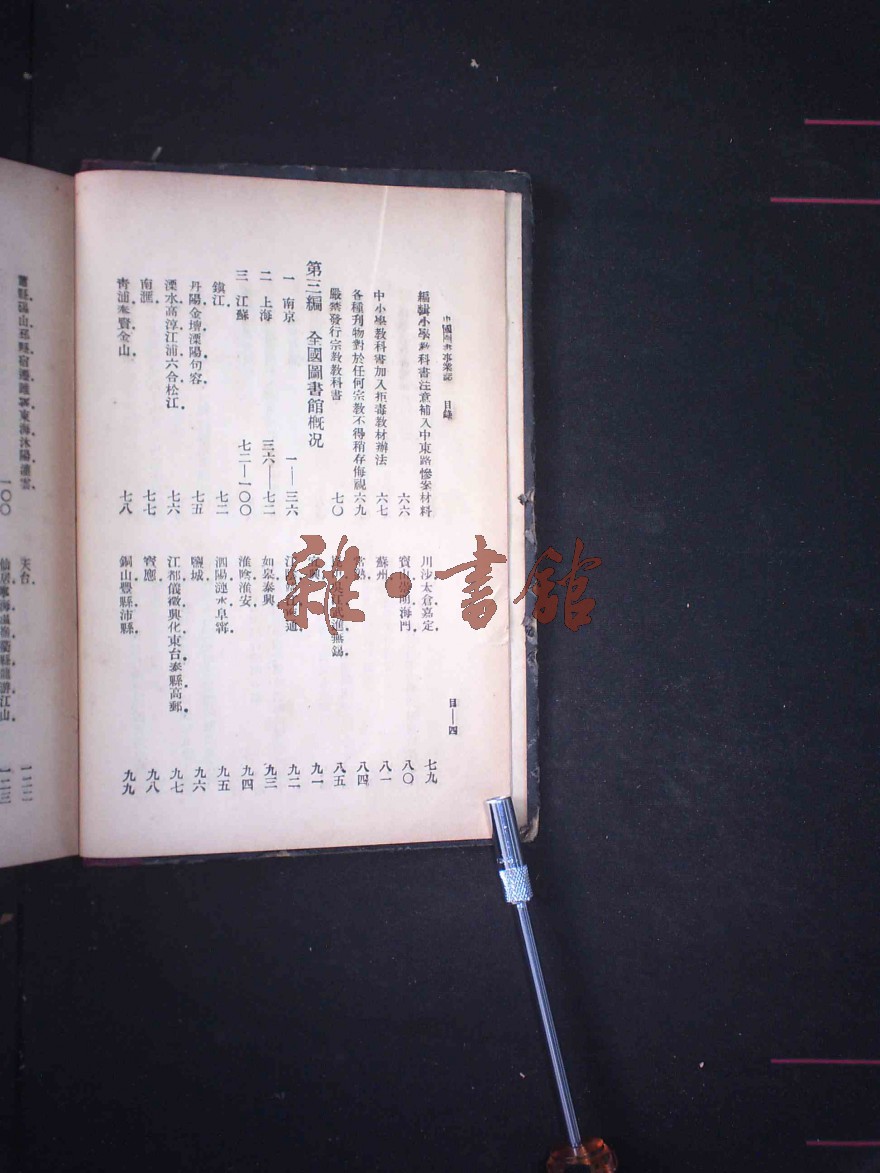 目錄
目—四
編輯小學教科書注意補入中東路慘案材料
六六
中小學教科書加入拒毒教材辦法
六七
各種刊物對於任何宗教不得稍存侮視
六九
嚴禁發行宗教教科書
七〇
第三編 全國圖書館概况
一 南京
一—三六
二 上海
三六—七二
三 江蘇
七二—一〇〇
鎮江.
七二
丹陽.金壇.溧陽.句容.
七五
溧水.高淳.江浦.六合.松江.
七六
南滙.
七七
青浦.奉賢.金山.
七八
川沙.太倉.嘉定.
七九
海門.
八〇
蘇州.
八一
八四
無錫.
八五
九一
九二
如皋.泰興.
九三
淮陰.淮安.
九四
泗陽.漣水.阜寧.
九五
鹽城.
九六
江都.儀徵.興化.東台.泰縣.高郵.
九七
寶應.
九八
銅山.豐縣.沛縣.
九九
一〇〇
天台.
一二二
一二三
雜·書館